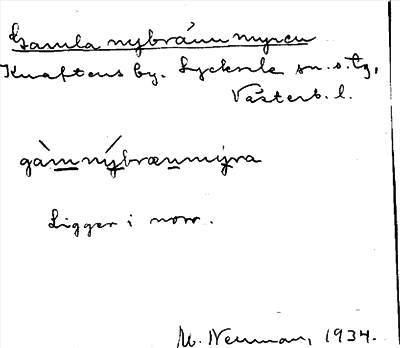 Gamla nybrännmyren
Knaftens by. Lycksele sn. o. tg,
Västerb. l.
gàm̲nýbrænmýra
Ligger i norr.
M. Neuman, 1934.